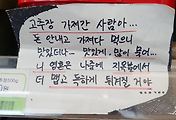 고추장 가져간 사람아...
돈 안내고 가져다 먹으니
맛있더냐~ 맛있게, 많이 묵어...
니 영혼은 나중에 지옥불에서
더 맵고 독하게 튀겨질 거야